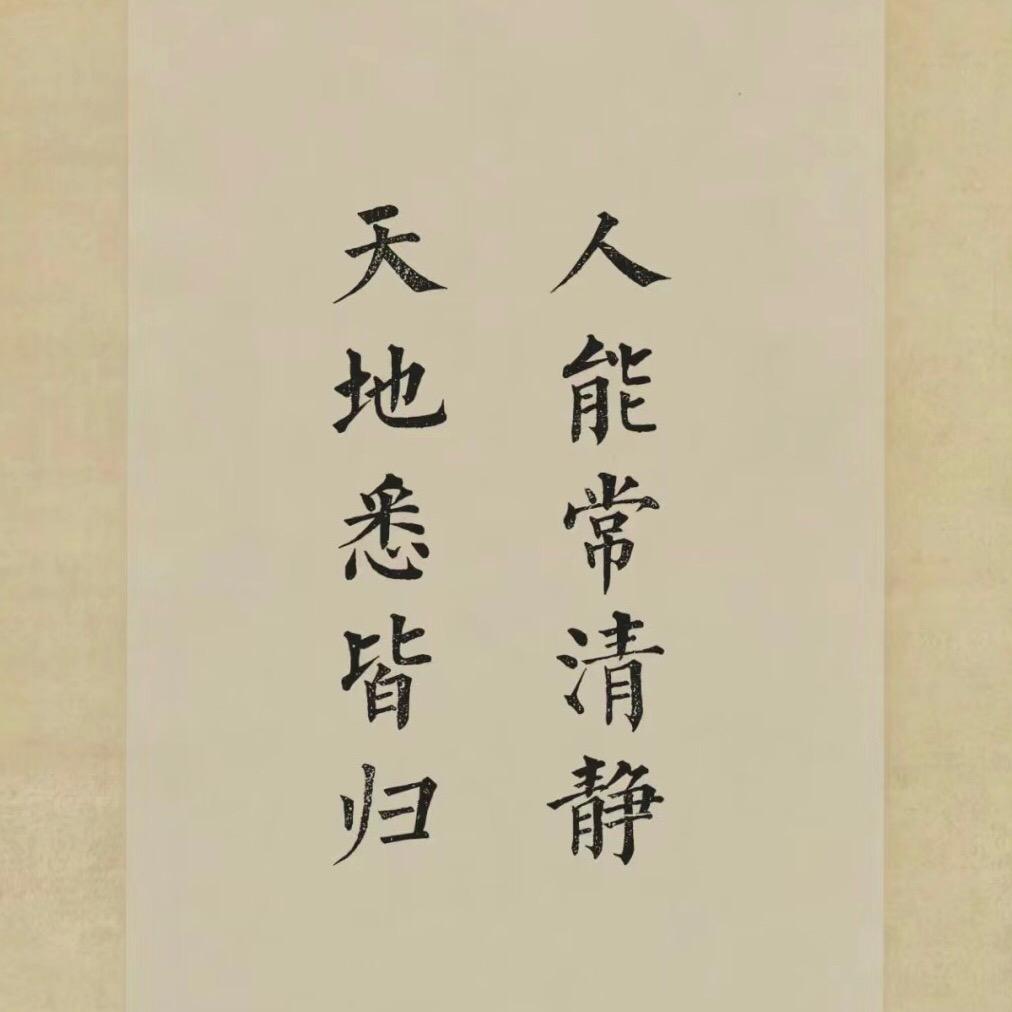 人能常清静
天地悉皆归